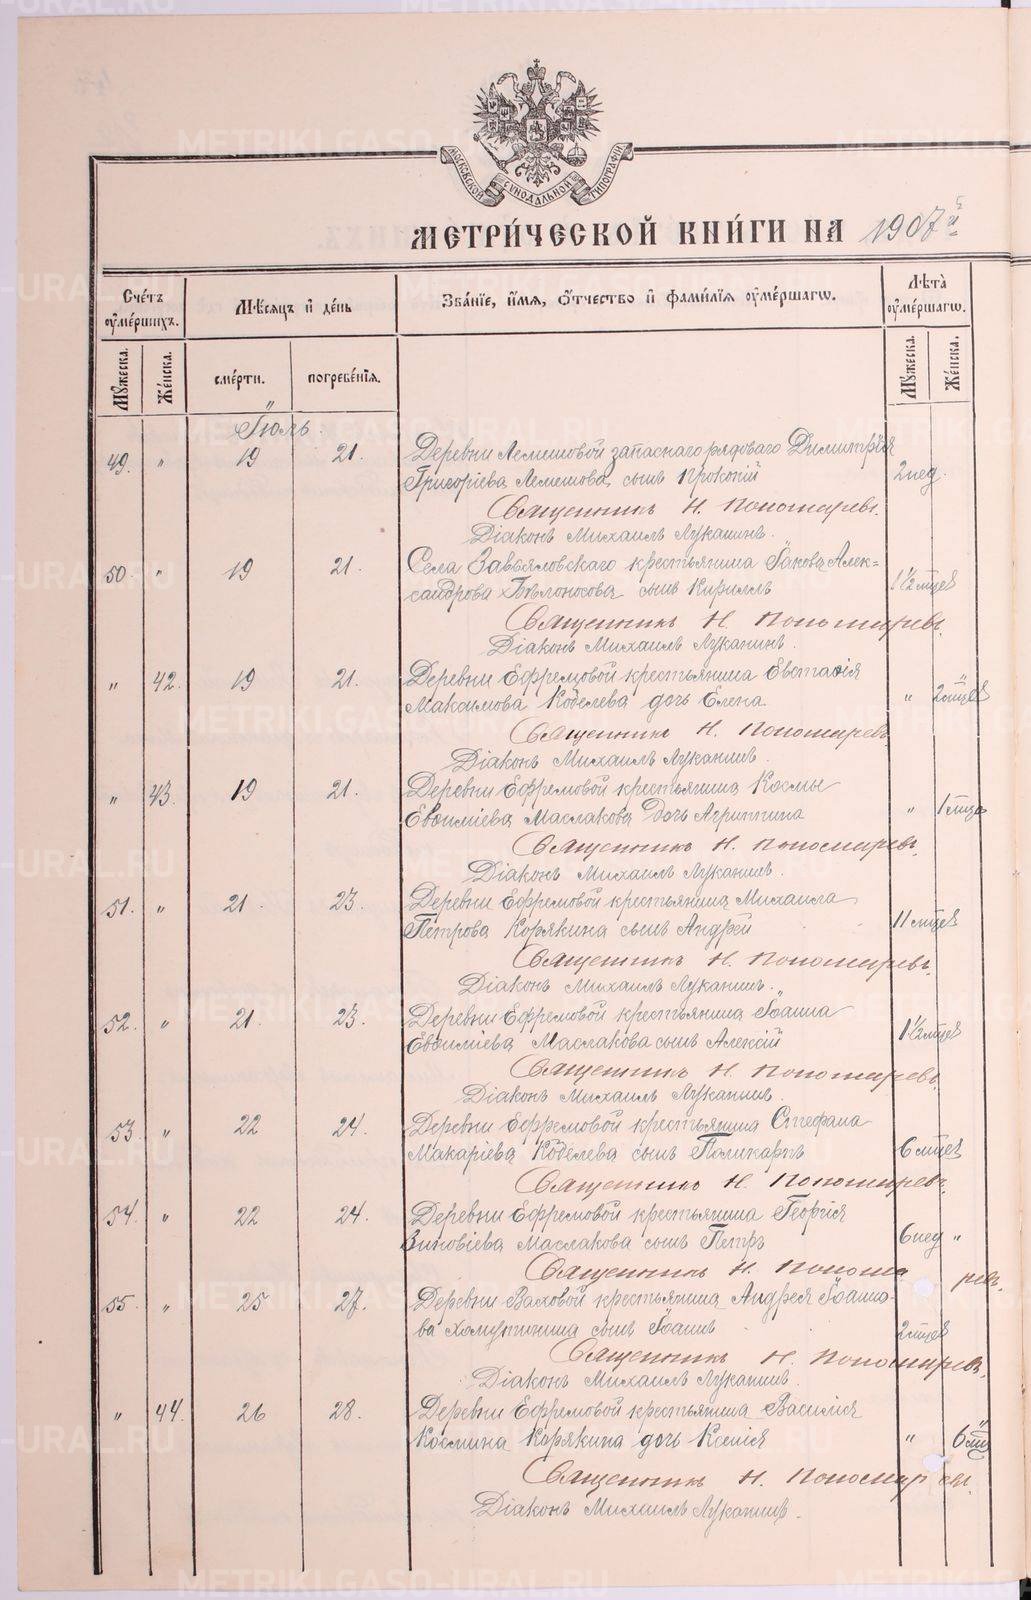 МОСКОВСКОЙ СѴНОДАЛЬНОЙ ТИПОГРАФІИ
МЕТРИ́ЧЕСКОЙ КНИ́ГИ НА 1907 й
Сче́тъ ᲂу҆ме́ршихъ. Мѣ́сяцъ и҆ де́нь Зва́нїе, и҆́мя, ѻ҆́тчество и҆ фами́лїя ᲂу҆ме́ршагѡ. Лѣ́та ᲂу҆ме́ршагѡ.
Му́жеска. Же́нска. сме́рти. погребе́нїя. Му́жеска. Же́нска.
Іюль.
49. " 19 21. Деревни Лемешовой запаснаго рядоваго Димитрія
Григоріева Лемешова, сынъ Прокопій 2 нед.
Священникъ Н. Пономаревъ.
Діаконъ Михаилъ Луканинъ.
50. " 19 21. Села Завьяловскаго крестьянина Іакова Алек=
сандрова Бѣлоносова сынъ Кириллъ 1 1/2 мѣсц
Священникъ Н. Пономаревъ.
Діаконъ Михаилъ Луканинъ.
" 42. 19 21. Деревни Ефремовой крестьянина
Максимова Кобелева дочь Елена. " 2 мѣсц
Священникъ Н. Пономаревъ.
Діаконъ Михаилъ Луканинъ.
" 43. 19 21. Деревни Ефремовой крестьянина Космы
Евѳиміева Маслакова дочь Агриппина " 1 мѣсц
Священникъ Н. Пономаревъ.
Діаконъ Михаилъ Луканинъ.
51. " 21. 23. Деревни Ефремовой крестьянина Михаила
Петрова Корякина сынъ Андрей 11 мѣсц
Священникъ Н. Пономаревъ.
Діаконъ Михаилъ Луканинъ.
52. " 21. 23. Деревни Ефремовой крестьянина Іоанна
Евѳиміева Маслакова сынъ Алексій 1 1/2 мѣсц
Священникъ Н. Пономаревъ.
Діаконъ Михаилъ Луканинъ.
53. " 22 24. Деревни Ефремовой крестьянина Стефана
Макаріева Кобелева сынъ Поликарпъ 6 мѣсц
Священникъ Н. Пономаревъ.
54. " 22 24. Деревни Ефремовой крестьянина Георгія
Зиновіева Маслакова сынъ Петръ 6 нед "
Священникъ Н. Пономаревъ.
55. " 25 27. Деревни Ваховой крестьянина Андрея Іоанно-
ва Хомутинина сынъ Іоаннъ 2 мѣсц
Священникъ Н. Пономаревъ.
Діаконъ Михаилъ Луканинъ.
" 44. 26 28. Деревни Ефремовой крестьянина Василія
Космина Корякина дочь Ксенія " 6 мѣсц
Священникъ Н. Пономаревъ.
Діаконъ Михаилъ Луканинъ.
METRIKI.GASO-URAL.RU